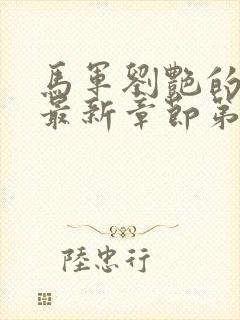 馬軍劉艷的
最新章節第
陸忠行